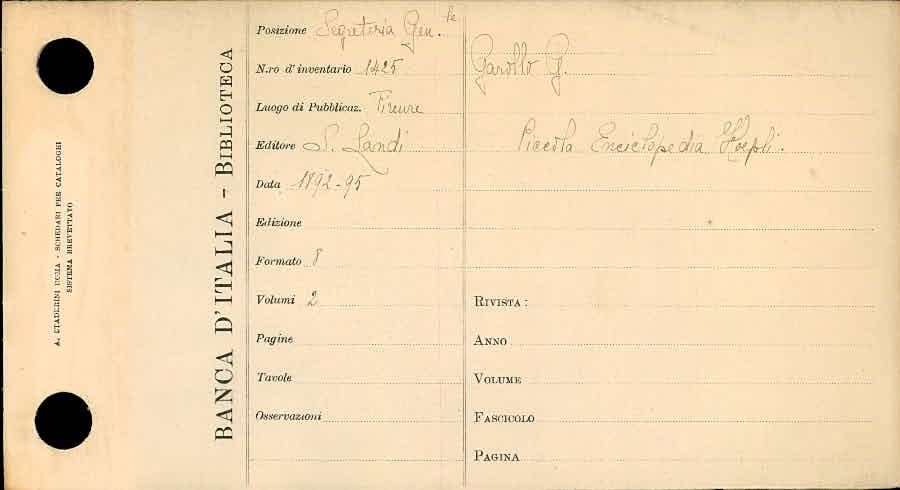 A. STADERINI ROMA - SCHEDARI PER CATALOGHI
SISTEMA BREVETTATO
BANCA D'ITALIA - BIBLIOTECA
Posizione Segreteria Gen.le
N.ro d'inventario 1425
Luogo di Pubblicaz. Firenze
Editore S. Landi
Data 1892-95
Edizione
Formato 8
Volumi 2
Pagine
Tavole
Osservazioni
Garollo G.
Piccola Enciclopedia Hoepli.
RIVISTA:
ANNO
VOLUME
FASCICOLO
PAGINA